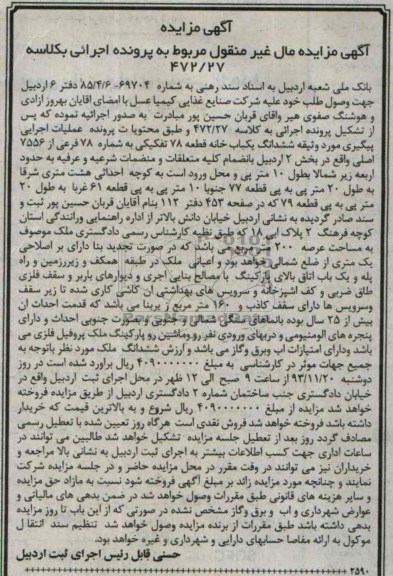 آگهی مزایده
آگهی مزایده مال غیر منقول مربوط به پرونده اجرائی بکلاسه
۴۷۲/۲۷
بانک ملی شعبه اردبیل به استناد سند رهنی به شماره ۶۹۷۰۴-۸۵/۴/۶ دفتر ۶ اردبیل
جهت وصول طلب خود علیه شرکت صنایع غذایی کیمیا عسل با امضای اقایان بهروز ازادی
و هوشنگ صفوی هیر واقای قربان حسین پور مبادرت به صدور اجرائیه نموده که پس
از تشکیل پرونده اجرائی به کلاسه ۴۷۲/۲۷ و طبق محتویات پرونده عملیات اجرایی
پیگیری مورد وثیقه ششدانگ یکباب خانه قطعه ۷۸ تفکیکی به شماره ۷۸ فرعی از ۷۵۵۶
اصلی واقع در بخش ۲ اردبیل بانضمام کلیه متعلقات و منضمات شرعیه و عرفیه به حدود
اربعه زیر شمالا بطول ۱۰ متر پی و محل ورود است به کوچه احداثی هشت متری شرقا
به طول ۲۰ متر پی به پی قطعه ۷۷ جنوبا ۱۰ متر پی به پی قطعه ۶۱ غربا به طول ۲۰
متر پی به پی قطعه ۷۹ که در صفحه ۴۵۳ دفتر ۱۱۲ بنام آقایان قربان حسین پور ثبت و
سند صادر گردیده به نشانی اردبیل خیابان دانش بالاتر از اداره راهنمایی ورانندگی استان
کوچه فرهنگ ۲ پلاک ایی ۱۸ که طبق نظیه کارشناس رسمی دادگستری ملک موصوف
به مساحت عرصه ۲۰۰ متر مربع می باشد که در صورت تجدید بنا دارای بر اصلاحی
یک متری از ضلع شمالی خواهد بود و اعیانی ملک در طبقه همکف و زیرزمین و راه
پله و یک باب اتاق بالای پارکینگ با مصالح بنایی اجری و دیوارهای باربر و سقف فلزی
طاق ضربی و کف اشپزخانه و سرویس های بهداشتی ان کاشی کاری شده تا زیر سقف
وسرویس ها دارای سقف کاذب و ۱۶۰ متر مربع زیربنا می باشد که قدمت احداث ان
بیش از ۲۵ سال بوده بانماهای سنگی شمالی و جنوبی و بصورت جنوبی احداث و دارای
پنجره های الومنیومی و دربهای ورودی نفر رو وماشین رو پارکینگ ملک پروفیل فلزی می
باشد ودارای امتیازات اب وبرق وگاز می باشد و ارزش ششدانگ ملک مورد نظر باتوجه به
جمیع جهات موثر در کارشناسی به مبلغ ۴۰۹۰۰۰۰۰۰۰ ریال براورد شده است در روز
دوشنبه ۹۳/۱۱/۲۰ از ساعت ۹ صبح الی ۱۲ ظهر در محل اجرای ثبت اردبیل واقع در
خیابان دادگستری جنب ساختمان شماره ۲ دادگستری اردبیل از طریق مزایده فروخته
خواهد شد مزایده از مبلغ ۴۰۹۰۰۰۰۰۰۰ ریال شروع و به بالاترین قیمت که خریدار
داشته باشد فروخته خواهد شد فروش نقدی است هرگاه روز تعیین شده با تعطیل رسمی
مصادف گردد روز بعد از تعطیل جلسه مزایده تشکیل خواهد شد طالبین می توانند در
ساعات اداری جهت کسب اطلاعات بیشتر به اجرای ثبت اردبیل به نشانی بالا مراجعه و
خریداران نیز می توانند در وقت مقرر در محل مزایده حاضر و در جلسه مزایده شرکت
نمایند و چنانچه مورد مزایده زائد بر مبلغ آگهی فروخته شود نسبت به مازاد حق مزایده
و سایر هزینه های قانونی طبق مقررات وصول خواهد شد در ضمن بدهی های مالیاتی و
عوارض شهرداری و اب و برق وگاز مشخص نشده در صورتی که از این باب تا روز مزایده
بدهی داشته باشد طبق مقررات از برنده مزایده وصول خواهد شد تنظیم سند انتقال
موکول به ارائه مفاصا حسابهای دارایی و شهرداری و غیره خواهد بود.
حسنی قابل رئیس اجرای ثبت اردبیل
۲۵۹۰